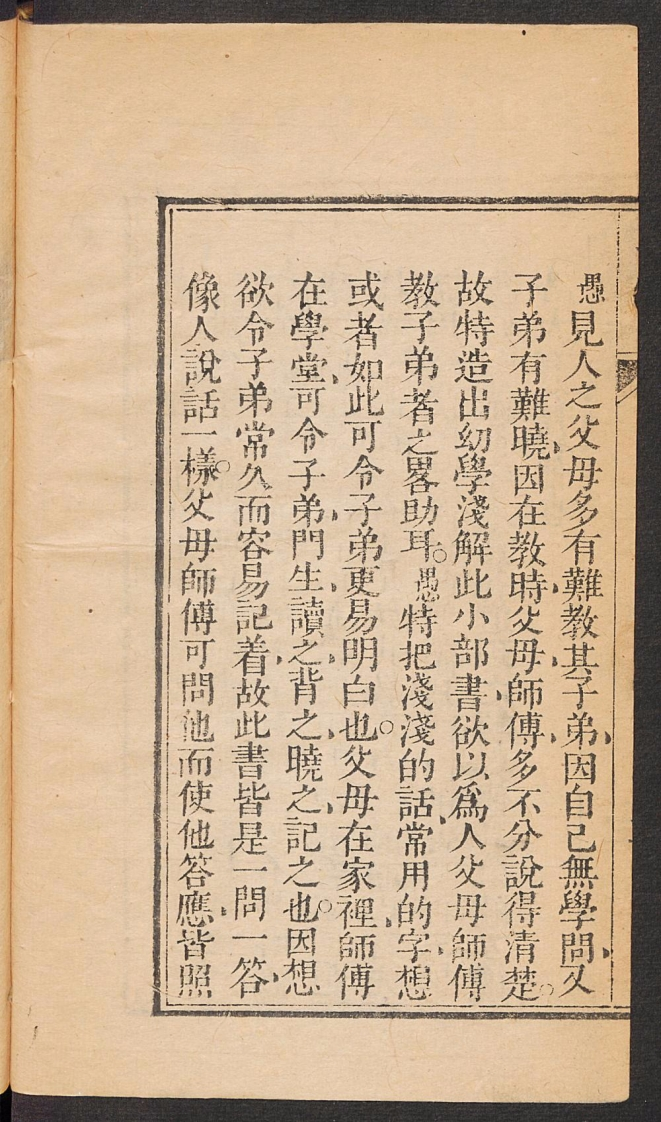 愚見人之父母多有難教其子弟、因自己無學問、又
子弟有難曉、因在教時、父母師傅、多不分說得清楚。
故特造出幼學淺解此小部書、欲以爲人父母師傅
教子弟者之畧助耳。愚特把淺淺的話、常用的字、想
或者如此可令子弟更易明白也。父母在家裡、師傅
在學堂、可令子弟、門生、讀之、背之、曉之、記之也。因想
欲令子弟常久而容易記着、故此書皆是一問一答、
像人說話一樣。父母師傅可問他而使他答應、皆照